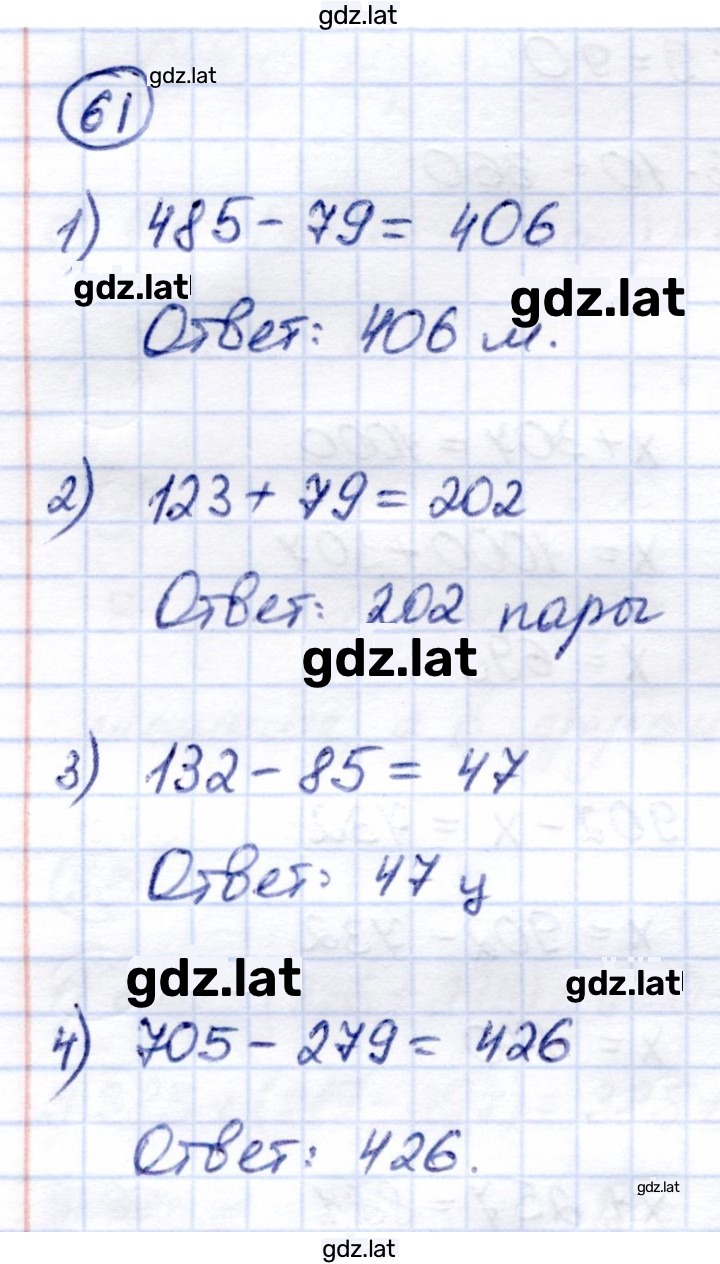 gdz.lat
gdz.lat
61
1) 485 - 79 = 406
gdz.lat
gdz.lat
Ответ: 406 м.
2) 123 + 79 = 202
Ответ: 202 пары
gdz.lat
3) 132 - 85 = 47
Ответ: 47 ц
gdz.lat
gdz.lat
4) 705 - 279 = 426
Ответ: 426.
gdz.lat
gdz.lat